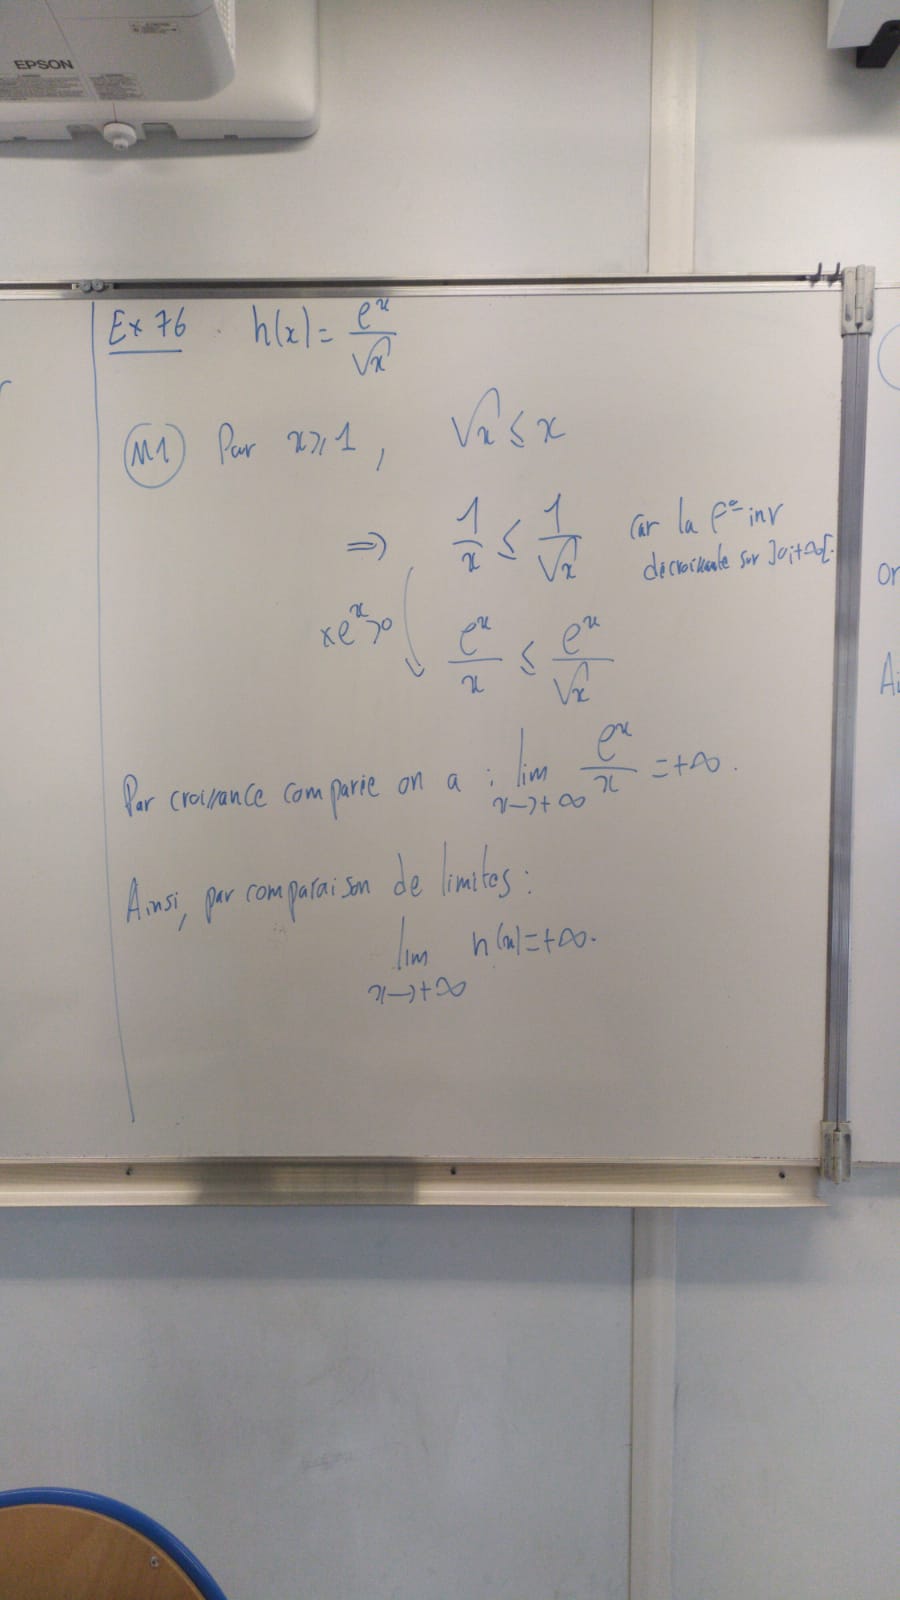 EPSON
Ex 76 . h(x) = e^x / √x
M1 Par x ⩾ 1 , √x ⩽ x
⇒ 1/x ⩽ 1/√x car la f° inv
décroissante sur ]0;+∞[.
×e^x>0
e^x/x ⩽ e^x/√x
Par croissance comparée on a : lim e^x/x = +∞ .
x→+∞
Ainsi, par comparaison de limites :
lim h(x)=+∞.
x→+∞
or
Ai